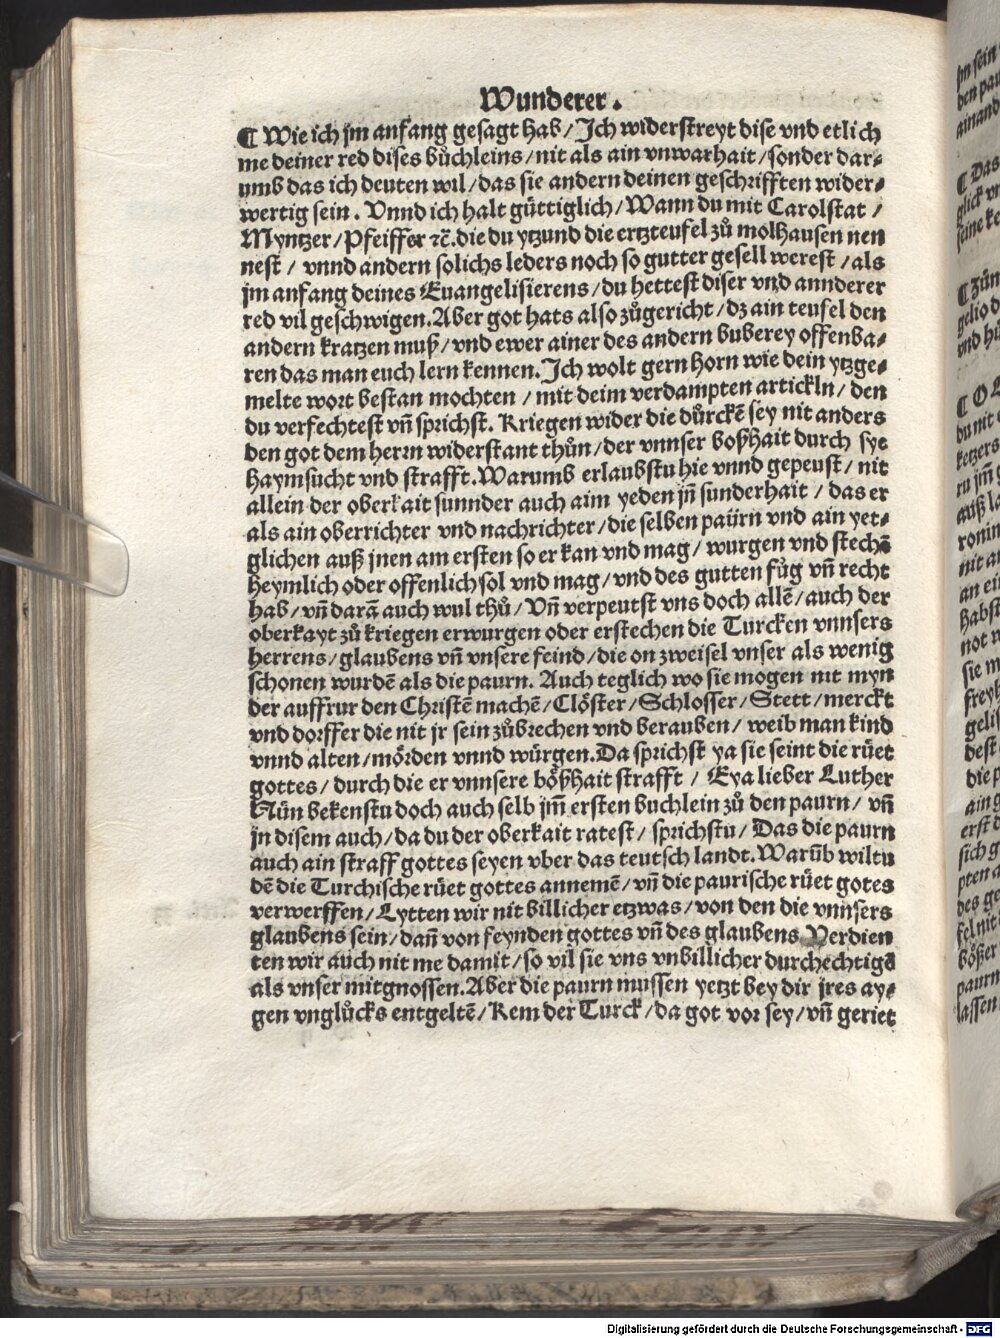 Wunderer.
¶ Wie ich jm anfang gesagt hab/ Ich widerstreyt dise vnd etlich
me deiner red dises bůchleins/ nit als ain vnwarhait/ sonder dar-
umb das ich deuten wil/ das sie andern deinen geschrifften wider-
wertig sein. Vnnd ich halt gůttiglich/ Wann du mit Carolstat/
Myntzer/ Pfeiffer ⁊c̄. die du ytzund die ertzteufel zů molhausen nen
nest/ vnnd andern solichs leders noch so gutter gesell werest/ als
jm anfang deines Euangelisierens/ du hettest diser vnd annderer
red vil geschwigen. Aber got hats also zůgericht/ dz ain teufel den
andern kratzen muß/ vnd ewer ainer des andern buberey offenba-
ren das man euch lern kennen. Ich wolt gern horn wie dein ytzge-
melte wort bestan mochten/ mit deim verdampten artickln/ den
du verfechtest vn̄ sprichst. Kriegen wider die důrckē sey nit anders
den got dem hern widerstant thůn/ der vnnser boßhait durch sye
haymsucht vnd strafft. Warumb erlaubstu hie vnnd gepeust/ nit
allein der oberkait sunnder auch aim yeden jn̄ sunderhait/ das er
als ain oberrichter vnd nachrichter/ die selben paürn vnd ain yet-
glichen auß jnen am ersten so er kan vnd mag/ wurgen vnd stechē
heymlich oder offenlich sol vnd mag/ vnd des gutten fůg vn̄ recht
hab/ vn̄ darā auch wul thů/ Vn̄ verpeutst vns doch allē/ auch der
oberkayt zů kriegen erwurgen oder erstechen die Turcken vnnsers
herrens/ glaubens vn̄ vnsere feind/ die on zweifel vnser als wenig
schonen wurdē als die paurn. Auch teglich wo sie mogen nit myn
der auffrur den Christē machē/ Clöster/ Schlosser/ Stett/ merckt
vnd dorffer die nit jr sein zůbrechen vnd berauben/ weib man kind
vnnd alten/ mörden vnnd würgen. Da sprichst ya sie seint die rüet
gottes/ durch die er vnnsere bößhait strafft/ Eya lieber Luther
Nün bekenstu doch auch selb jm̄ ersten buchlein zů den paurn/ vn̄
jn disem auch/ da du der oberkait ratest/ sprichstu/ Das die paurn
auch ain straff gottes seyen vber das teutsch landt. Warūb wiltu
dē die Turchische rüet gottes annemē/ vn̄ die paurische rüet gotes
verwerffen/ Lytten wir nit billicher etzwas/ von den die vnnsers
glaubens sein/ dan̄ von feynden gottes vn̄ des glaubens Verdien
ten wir auch nit me damit/ so vil sie vns vnbillicher durchechtigē
als vnser mitgnossen. Aber die paurn mussen yetzt bey dir jres ay-
gen vnglůcks entgeltē/ Kem der Turck/ da got vor sey/ vn̄ geriet
Digitalisierung gefördert durch die Deutsche Forschungsgemeinschaft - DFG